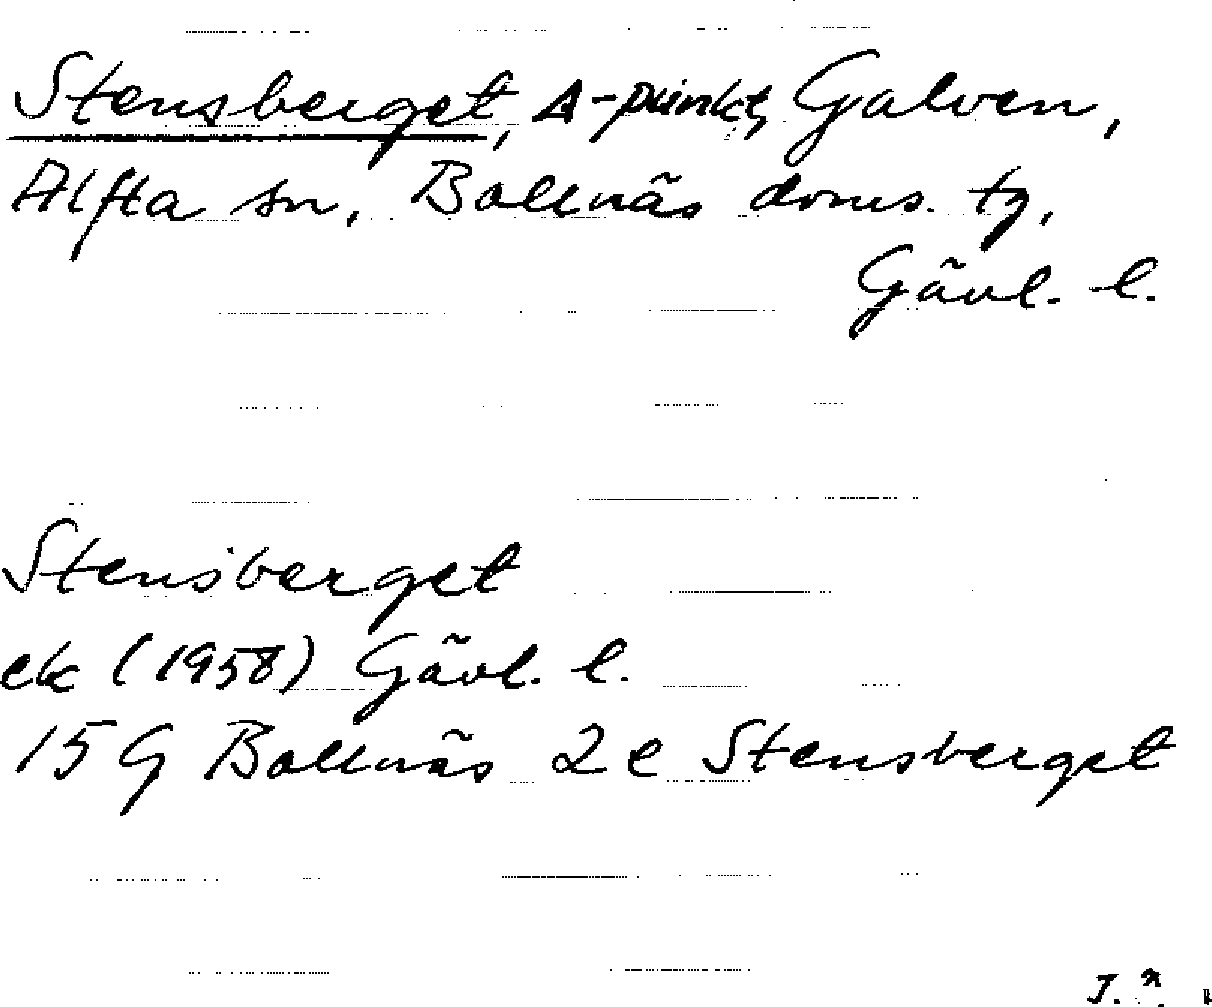 Stensberget, Δ-punkt, Galven,
Alfta sn, Bollnäs doms. tg,
Gävl. l.
Stensberget
ek (1958) Gävl. l.
15 G Bollnäs 2 e Stensberget